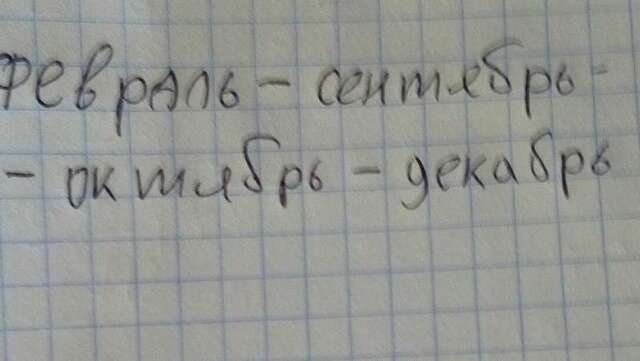 февраль - сентябрь -
- октябрь - декабрь